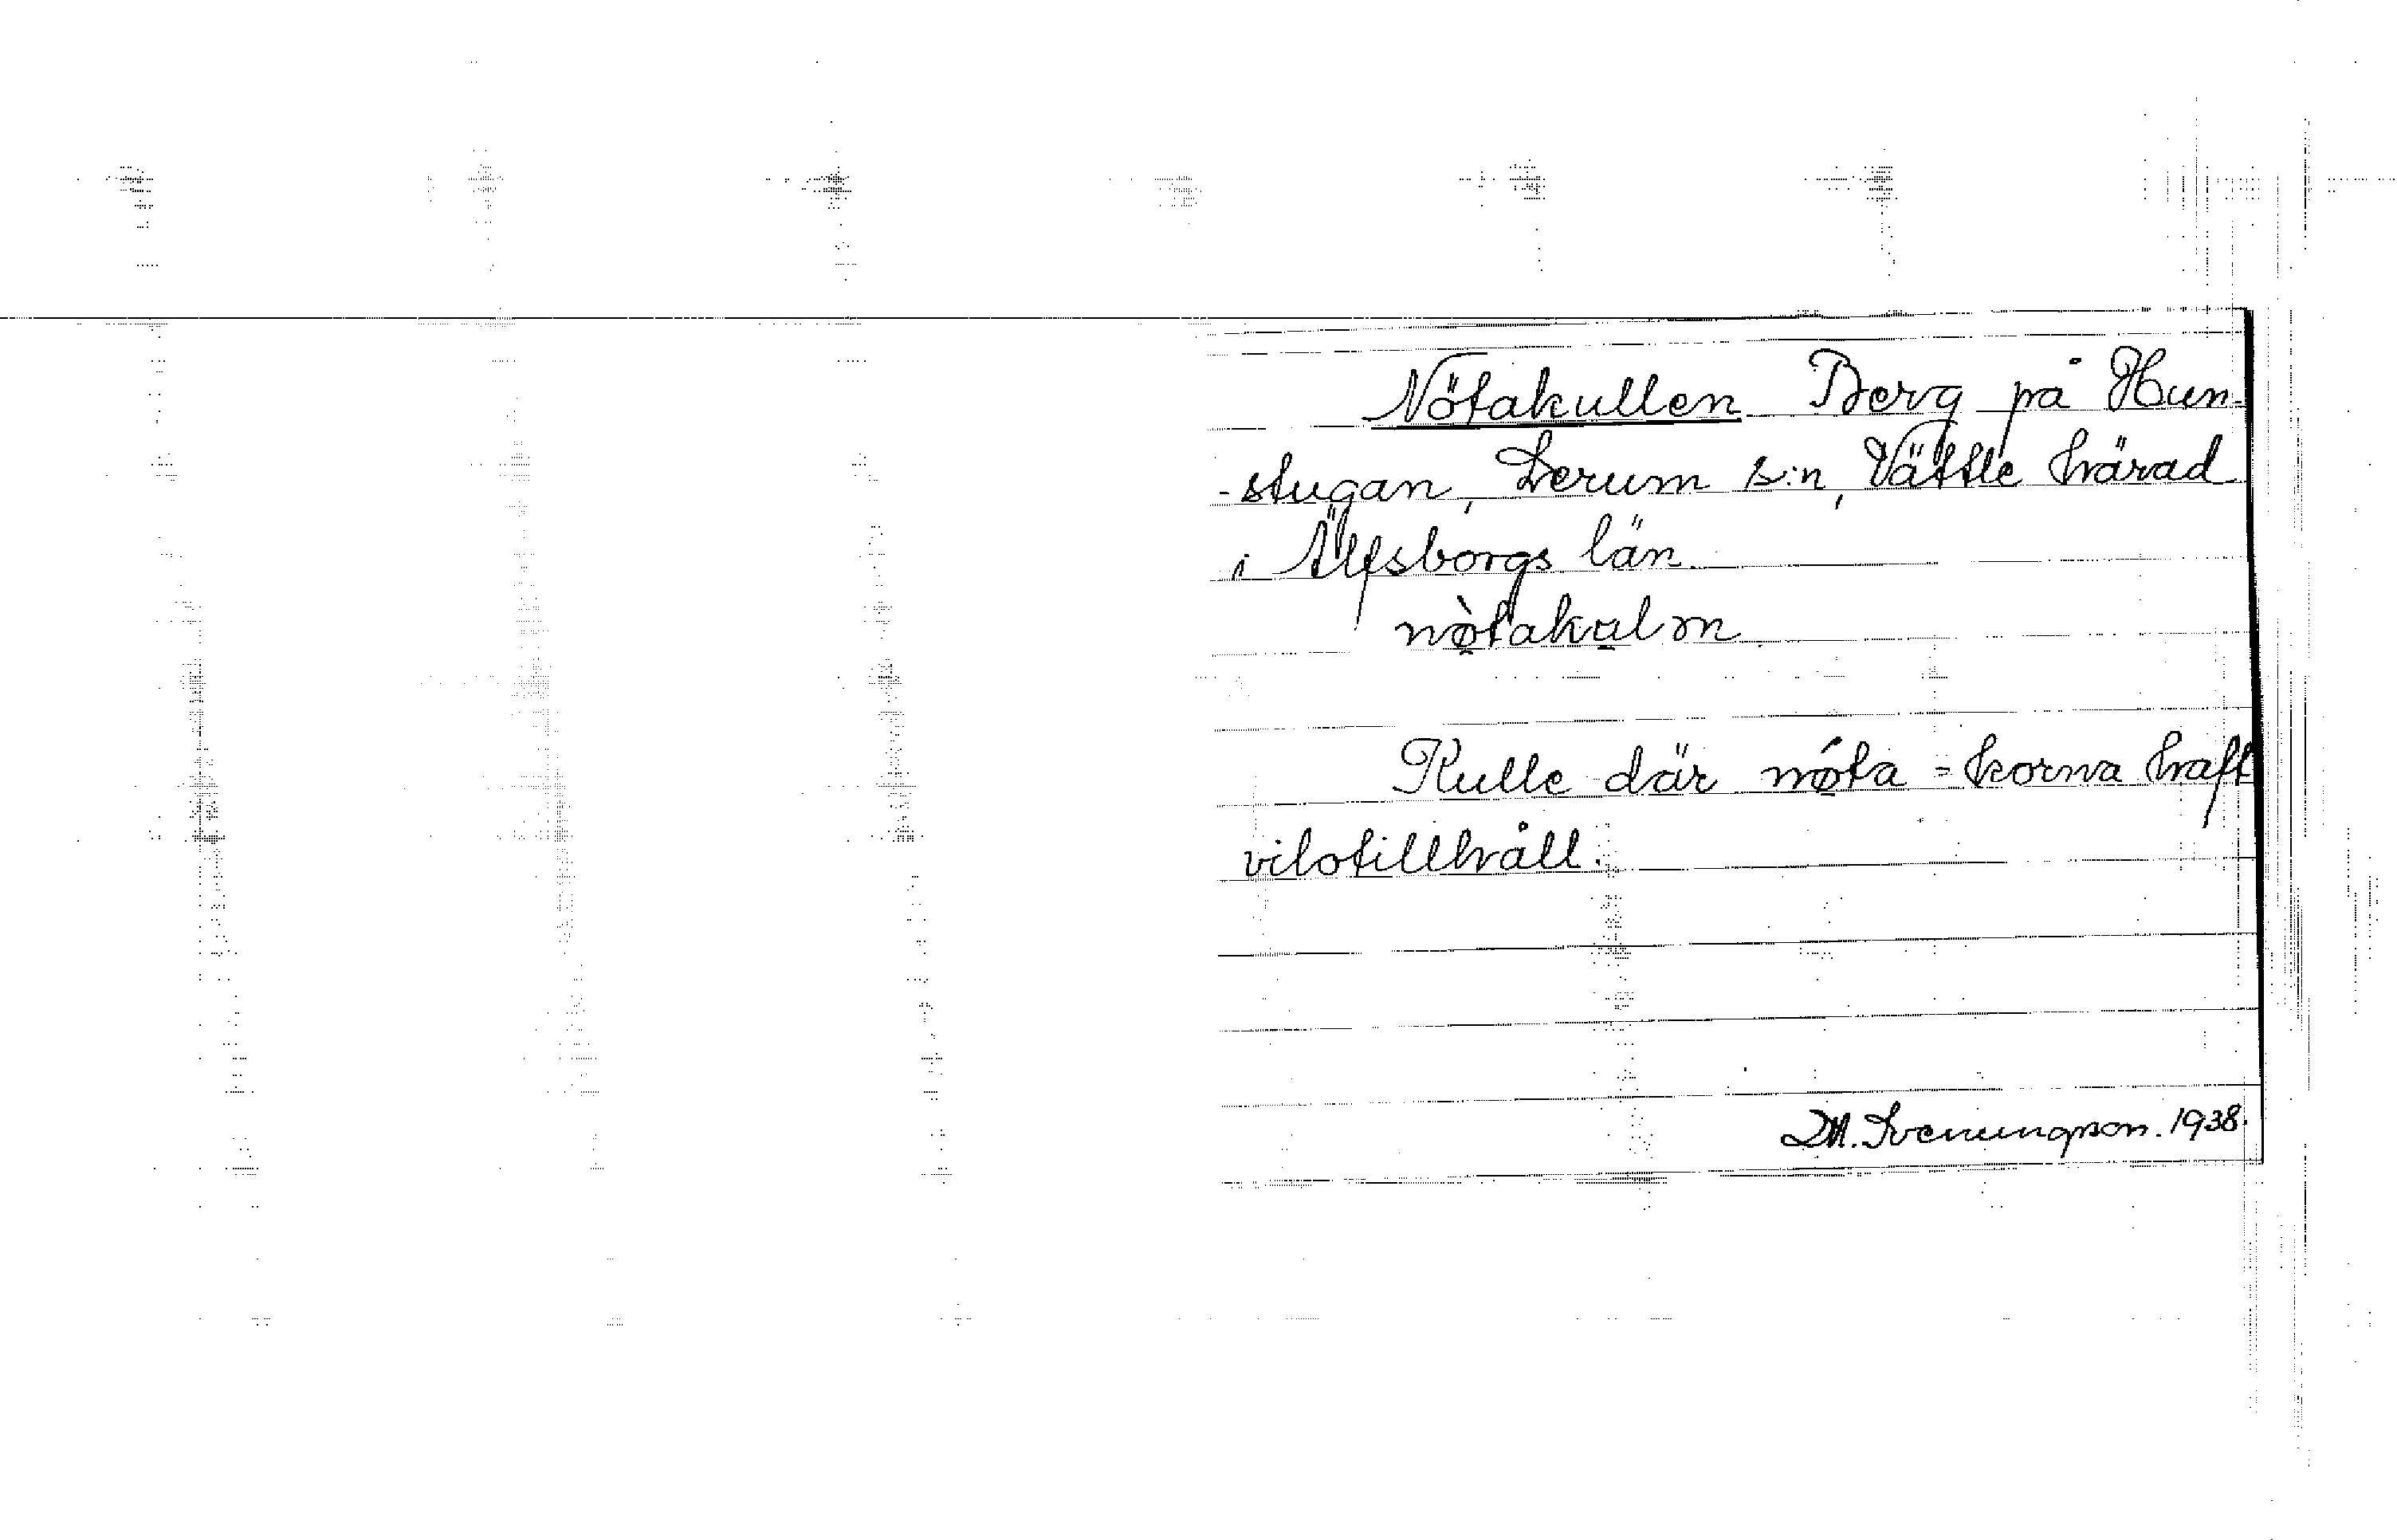 Nötakullen Berg på Hun-
-stugan, Lerum s:n, Vättle härad
i Älfsborgs län.
nø̀takulm
Kulle där nǿta = korna haft
vilotillhåll.
M. Svenungsson. 1938.